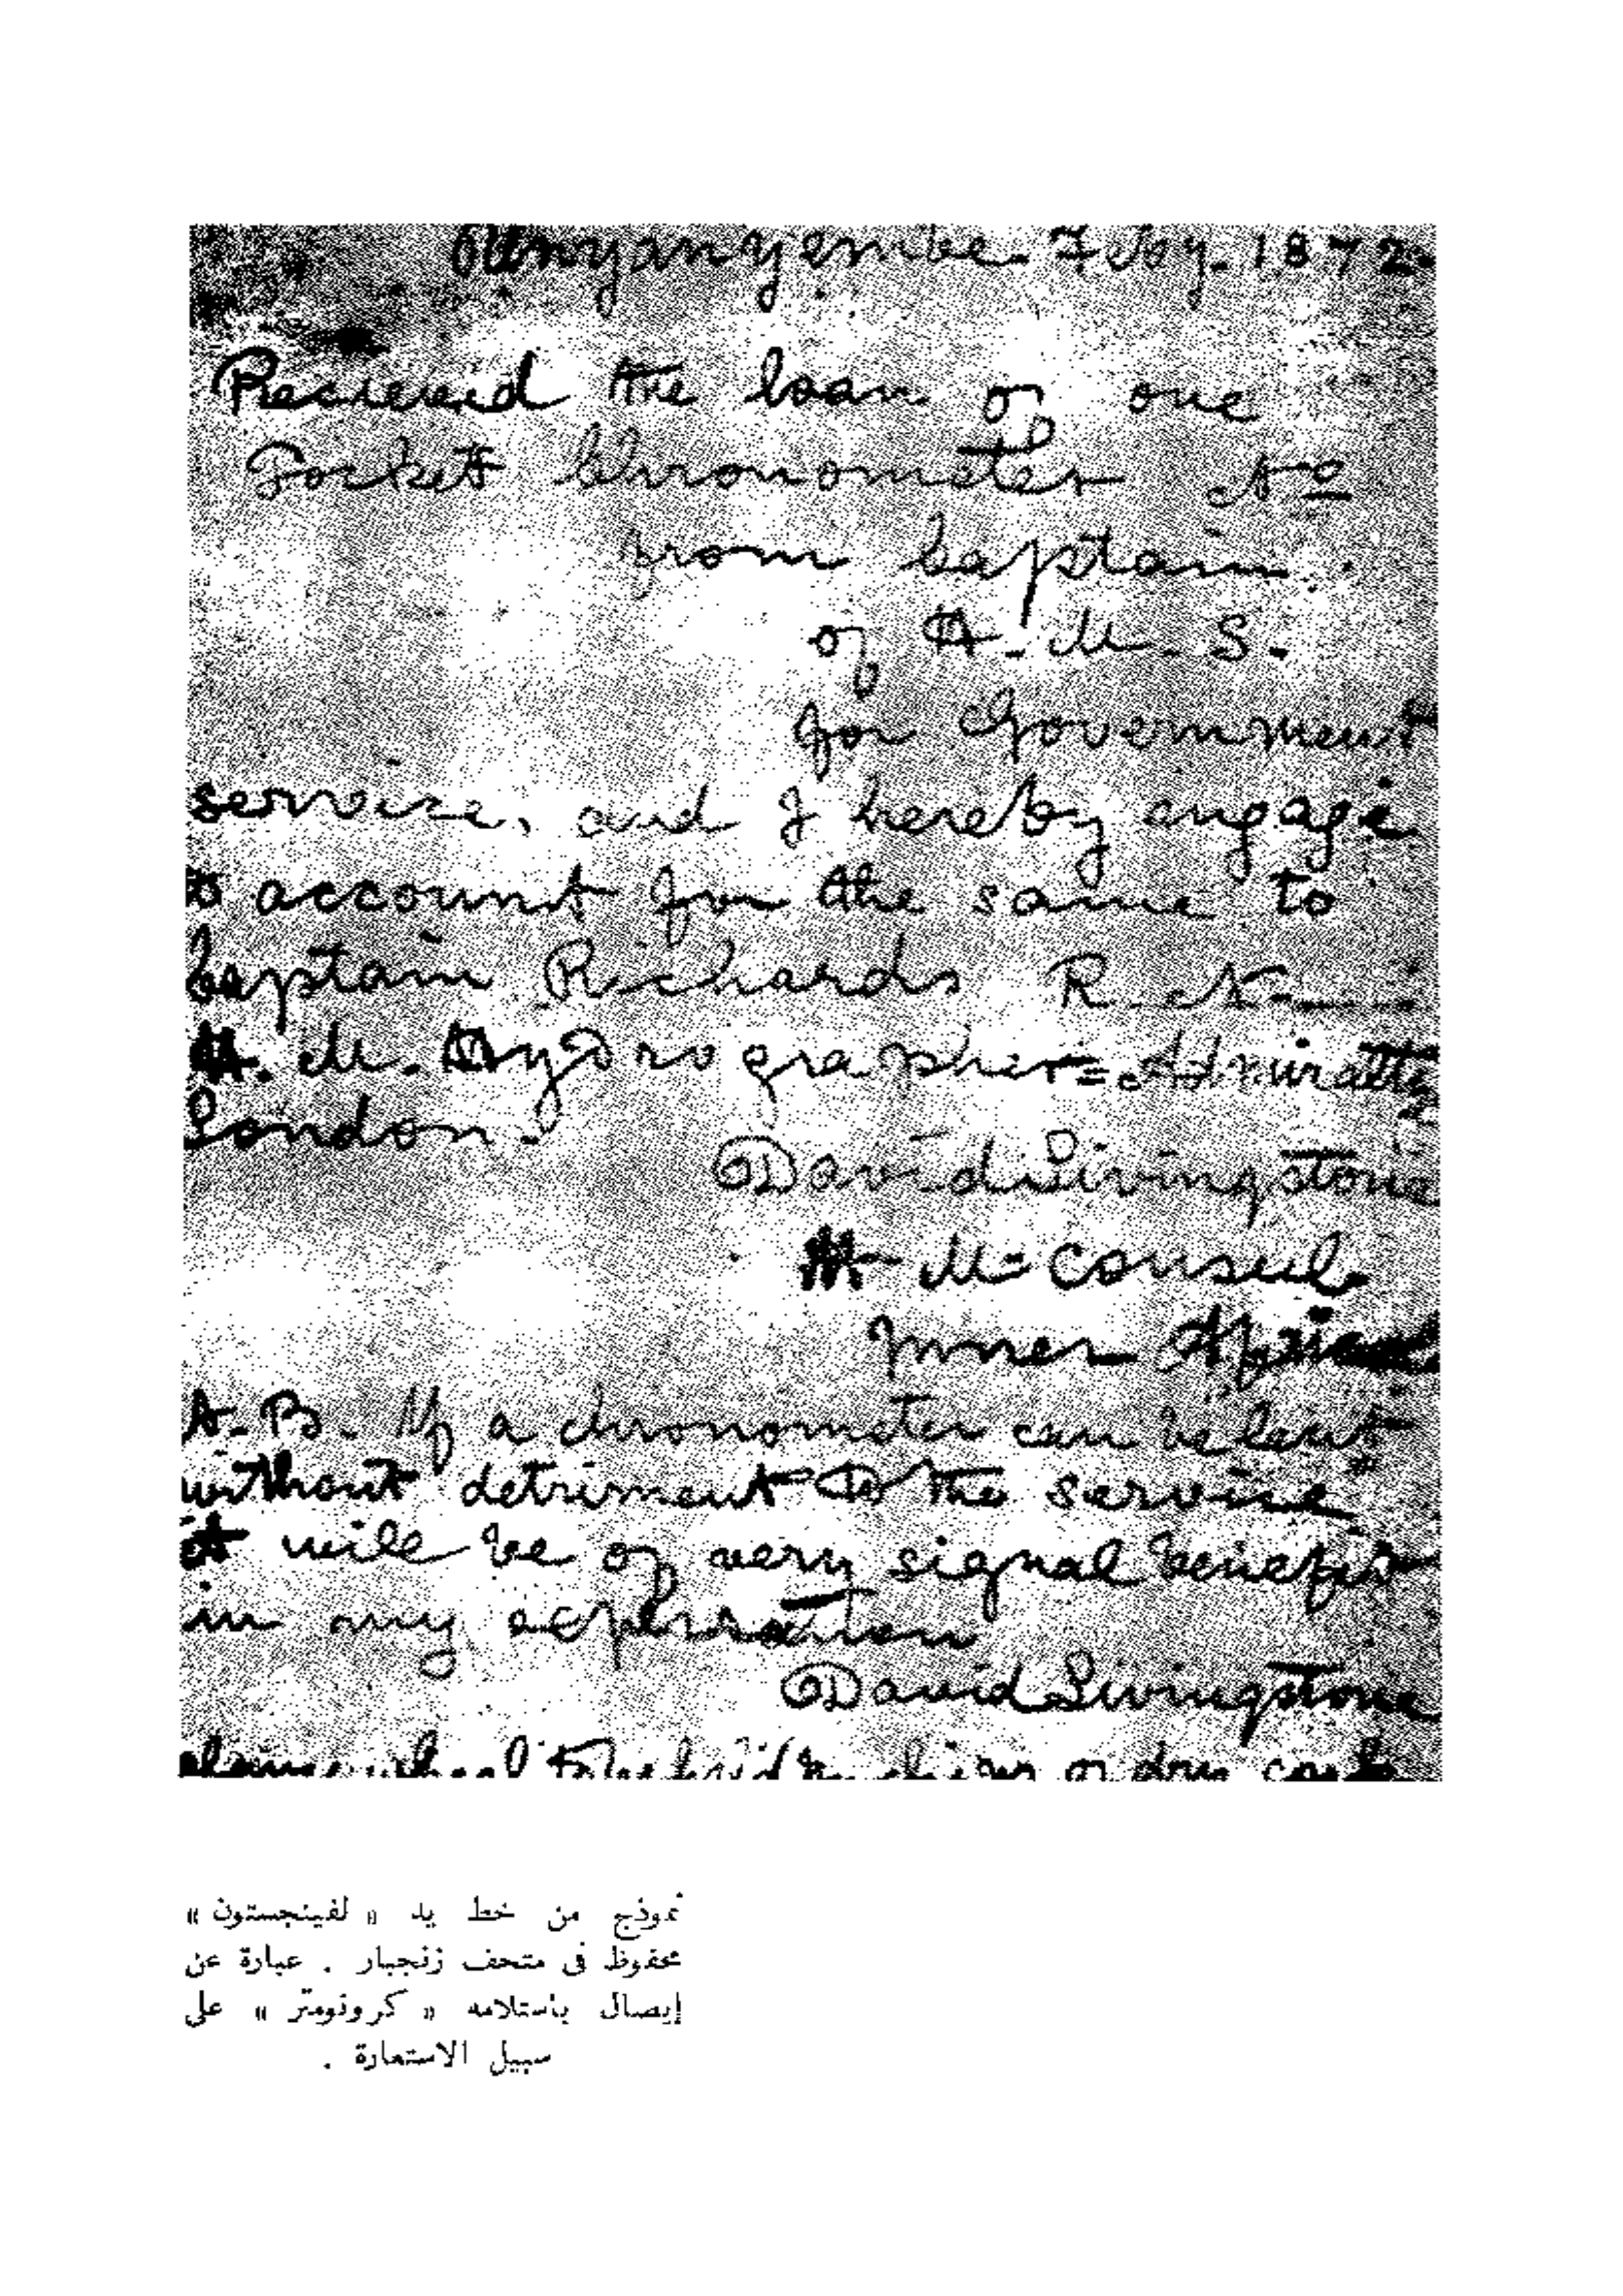 Unyanyembe. Feby. 1872.
Received the loan of one
Pocket Chronometer No
from Captain
of H. M. S.
for Government
service, and I hereby engage
to account for the same to
Captain Richards R. N.
H. M. Hydrographer = Admiralty
London.
David Livingstone
H M = Consul
Inner Africa
N. B. If a chronometer can be lent
without detriment to the service
it will be of very signal benefit
in my exploration
David Livingstone
نموذج من خط يد « لفينجستون »
محفوظ فى متحف زنجبار . عبارة عن
إيصال باستلامه « كرونومتر » على
سبيل الاستعارة .